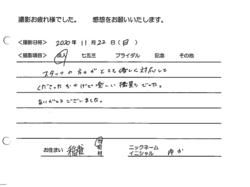 撮影お疲れ様でした。 感想をお願いいたします。
<撮影日時> 2020年 11月 22日 (日)
<撮影項目> 成人 七五三 ブライダル 記念 その他
スタッフの方がとても優しく対応して
くださったおかげで楽しい撮影でした。
ありがとうございました。
お住まい 稲城 市 ニックネーム
イニシャル